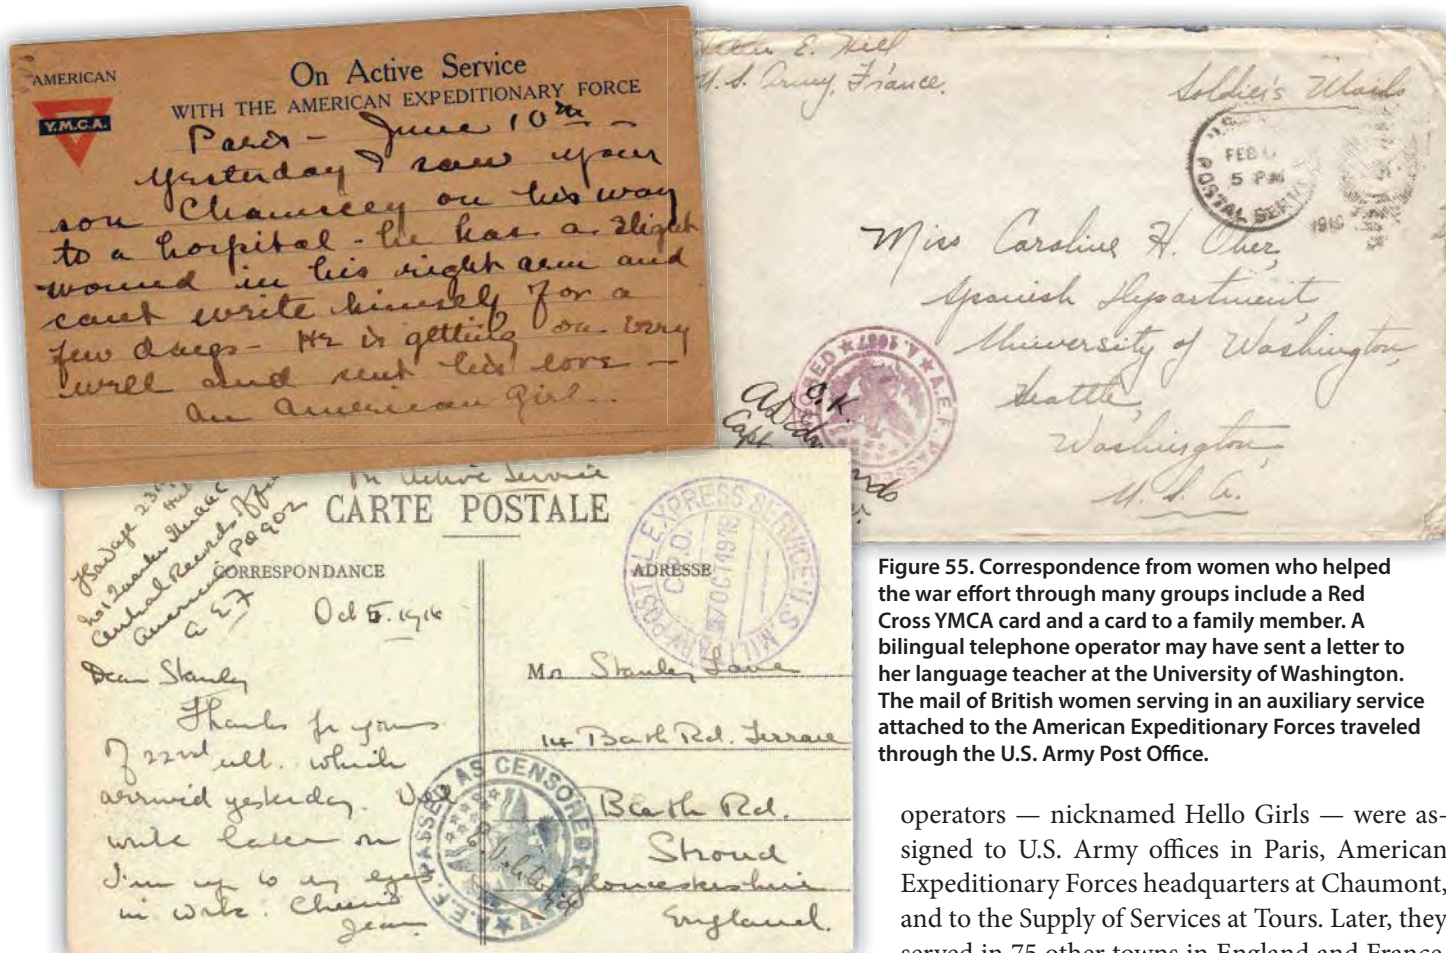 AMERICAN
Y.M.C.A.
On Active Service
WITH THE AMERICAN EXPEDITIONARY FORCE
Paris - June 10th -
Yesterday I saw your
son Chauncey on his way
to a hospital - he has a slight
wound in his right arm and
cant write himself for a
few days - He is getting on very
well and sent his love -
an American Girl.
E. Hill
U.S. Army, France.
Soldier's Mail
FEB
5 PM
POSTAL SERVICE
Miss Caroline H. Ober,
Spanish Department,
University of Washington,
Seattle,
Washington,
U. S. A.
A.E.F. PASSED
O.K.
Capt
On Active Service
CARTE POSTALE
CORRESPONDANCE
ADRESSE
Central Records Office
American PO 902
A E F
U.S. MILITARY POSTAL EXPRESS SERVICE
7 OCT 1918
Oct 5. 1918
Dear Stanley
Thanks for yours
of 22nd ult. which
arrived yesterday. Will
write later on
I'm up to my eyes
in work. Cheerio
Jean
A.E.F. PASSED AS CENSORED
Mr Stanley
14 Bath Rd. Terrace
Bath Rd.
Stroud
Gloucestershire
England.
Figure 55. Correspondence from women who helped
the war effort through many groups include a Red
Cross YMCA card and a card to a family member. A
bilingual telephone operator may have sent a letter to
her language teacher at the University of Washington.
The mail of British women serving in an auxiliary service
attached to the American Expeditionary Forces traveled
through the U.S. Army Post Office.
operators — nicknamed Hello Girls — were as-
signed to U.S. Army offices in Paris, American
Expeditionary Forces headquarters at Chaumont,
and to the Supply of Services at Tours. Later, they
served in 75 other towns in England and France.